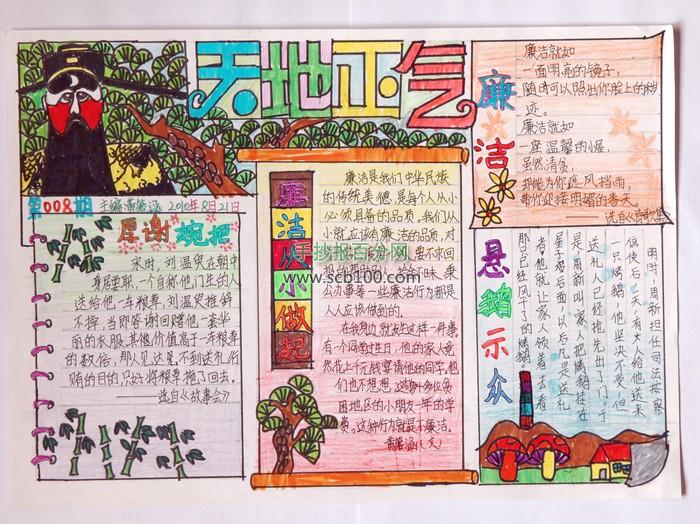 天地正气
第008期
2010年8月21日
厚谢婉拒
宋时,刘温叟在朝中
身居要职,一个自称他门生的人
送给他一车粮草,刘温叟推辞
不掉,当即答谢回赠他一套华
丽的衣服,其价值高于一车粮草
的数倍,那人见达不到送礼行
贿的目的只好将粮草拖了回去。
——选自《故事会》
廉洁从小做起
廉洁是我们中华民族
的传统美德,是每个人从小
必须具备的品质,我们从
小就应该有廉洁的品质,对
要不来回
人人应该做到的。
在我身边就发生这样一件事
有一个同学过生日,他的家人竟
然花上千元钱宴请他的同学,他
们也不想想,这相当多少贫
困地区的小朋友一年的学
费。这种行为就是不廉洁。
手抄报百分网
www.scb100.com
廉洁
廉洁就如
一面明亮的镜子,
随时可以照出你脸上的秽
迹。
廉洁就如
一座温馨的小屋,
虽然清贫,
却能为你遮风挡雨,
带你迎接明媚的春天。
悬鹅示众
明时,周新担任司法按察
使后,一天,有人给他送来
一只烤鹅,他坚决不受,但
送礼人已经抢先出了门。于
是周新叫家人把烤鹅挂在
屋子后面,以后凡是送礼
者,他就让家人领着去看
那只已经风干了的烤鹅。